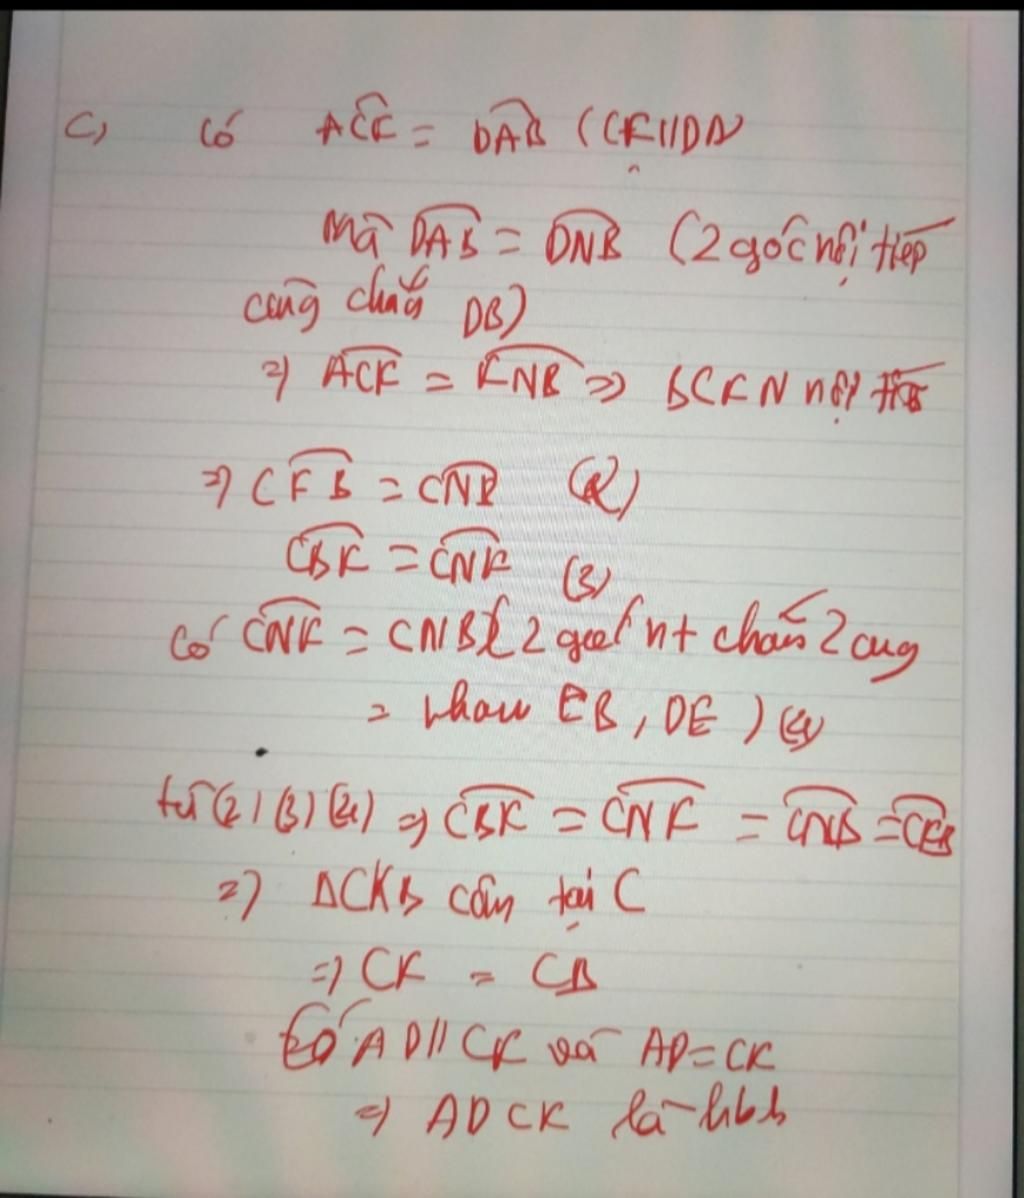 c, Có ACK = DAB (CK//DA)
mà DAB = DNB (2 góc nội tiếp
cùng chắn DB)
=> ACK = KNB => BCKN nội tiếp
=> CKB = CNB (2)
CBK = CNK (3)
Có CNK = CNB (2 góc nt chắn 2 cung
= nhau EB, DE) (4)
từ (2) (3) (4) => CBK = CNK = CNB = CKB
=> ΔCKB cân tại C
=> CK = CB
Có AD//CK và AD=CK
=> ADCK là hbh